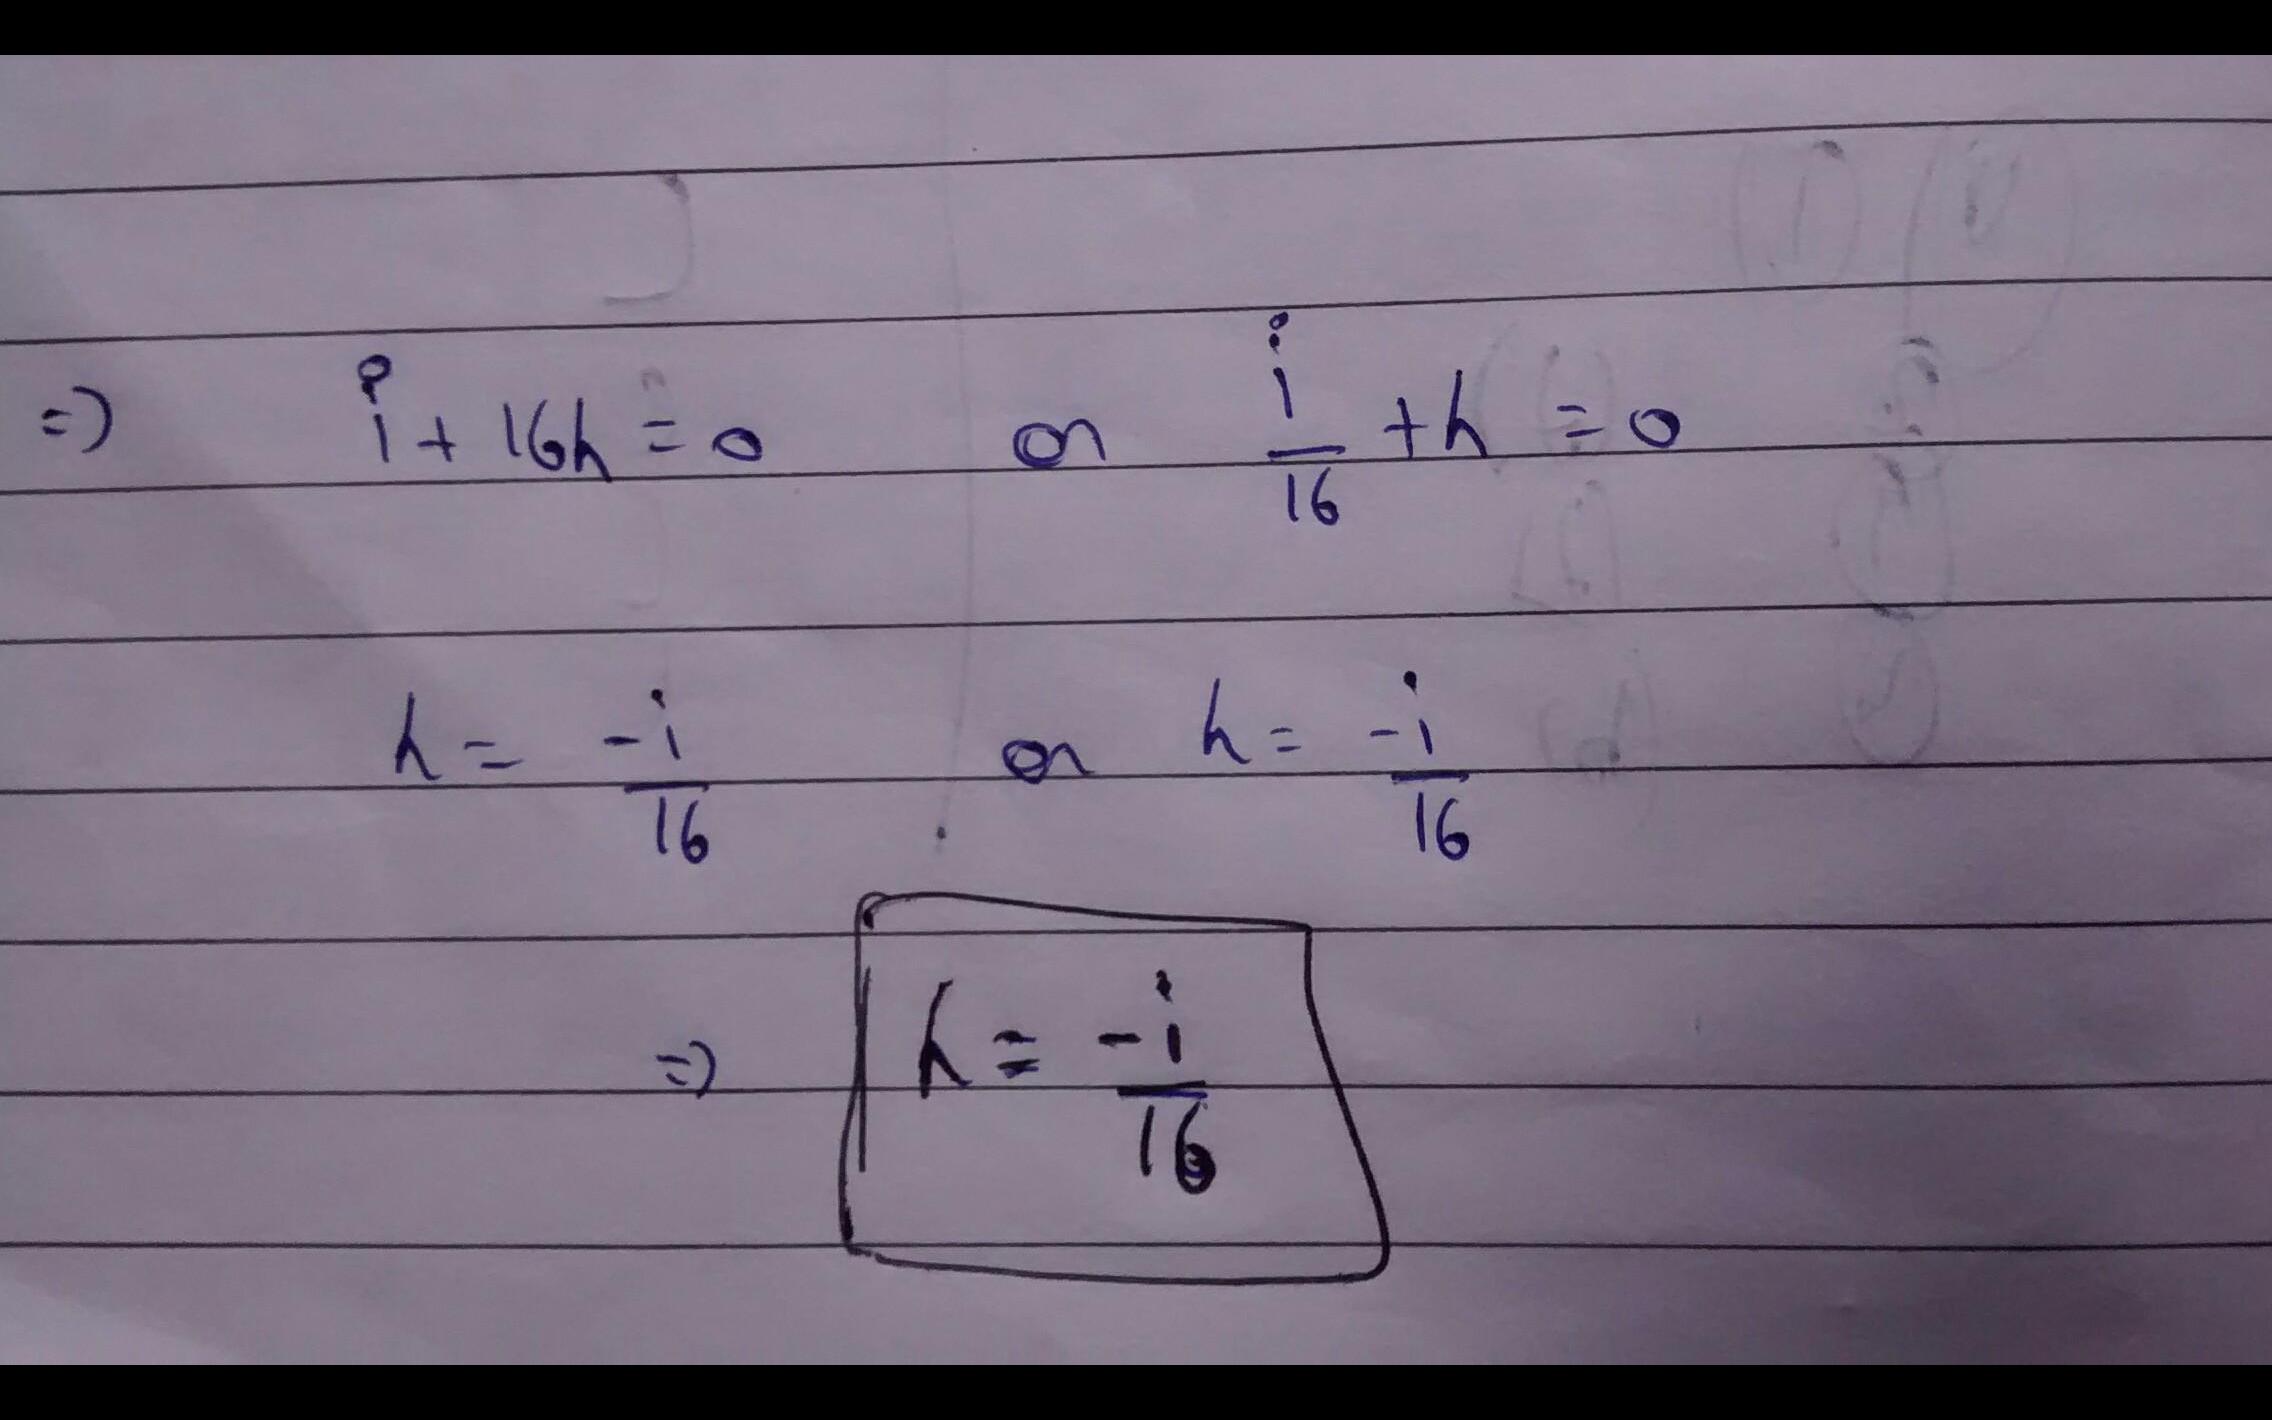 =) i + 16h = 0 or i/16 + h = 0
h = -i/16 or h = -i/16
=) h = -i/16